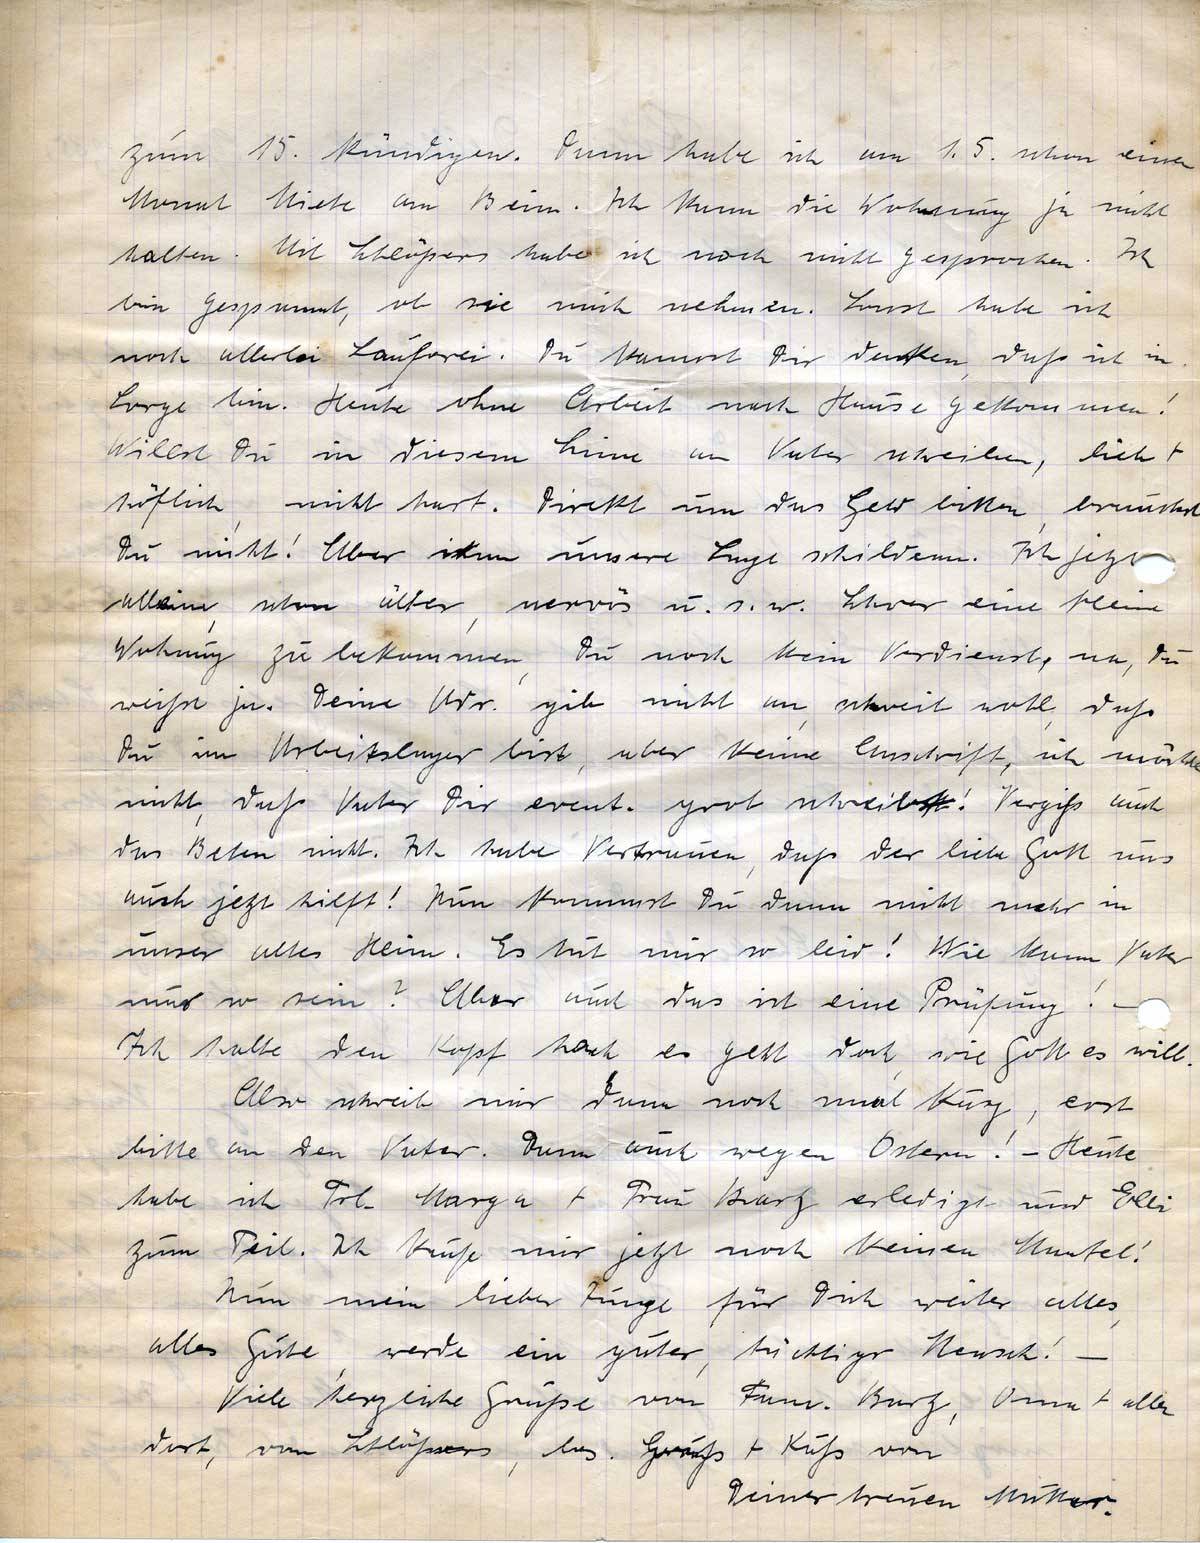 zum 15. kündigen. Dann habe ich am 1.5. schon einen
Monat Miete am Bein. Ich kann die Wohnung ja nicht
halten. Mit Schlößers habe ich noch nicht gesprochen. Ich
bin gespannt, ob sie mich nehmen. Sonst habe ich
noch allerlei Lauferei. Du kannst Dir denken, daß ich in
Sorge bin. Heute ohne Arbeit nach Hause gekommen!
Willst Du in diesem Sinne an Vater schreiben, lieb +
höflich, nicht hart. Direkt um das Geld bitten, brauchst
Du nicht! Aber ihm unsere Lage schildern. Ich jetzt
allein, schon älter, nervös u.s.w. Schwer eine kleine
Wohnung zu bekommen, Du noch kein Verdienst, na, Du
weißt ja. Deine Adr. gib nicht an, schreib wohl, daß
Du im Arbeitslager bist, aber keine Anschrift, ich möchte
nicht, daß Vater Dir event. grob schreibt! Vergiß auch
das Beten nicht. Ich habe Vertrauen, daß der liebe Gott uns
auch jetzt hilft! Nun kommst Du dann nicht mehr in
unser altes Heim. Es tut mir so leid! Wie kann Vater
nur so sein? Aber auch das ist eine Prüfung! –
Ich halte den Kopf hoch es geht doch, wie Gott es will.
Also schreib mir dann noch mal kurz, erst
bitte an den Vater. Dann auch wegen Ostern! – Heute
habe ich Frl. Marga + Frau Bartz erledigt und Elli
zum Teil. Ich kaufe mir jetzt noch keinen Mantel!
Nun mein lieber Junge für Dich weiter alles,
alles Gute, werde ein guter, tüchtiger Mensch! –
Viele herzliche Grüße von Fam. Bartz, Oma + allen
dort, von Schlößers, bes. Gruß + Kuß von
Deiner treuen Mutter.